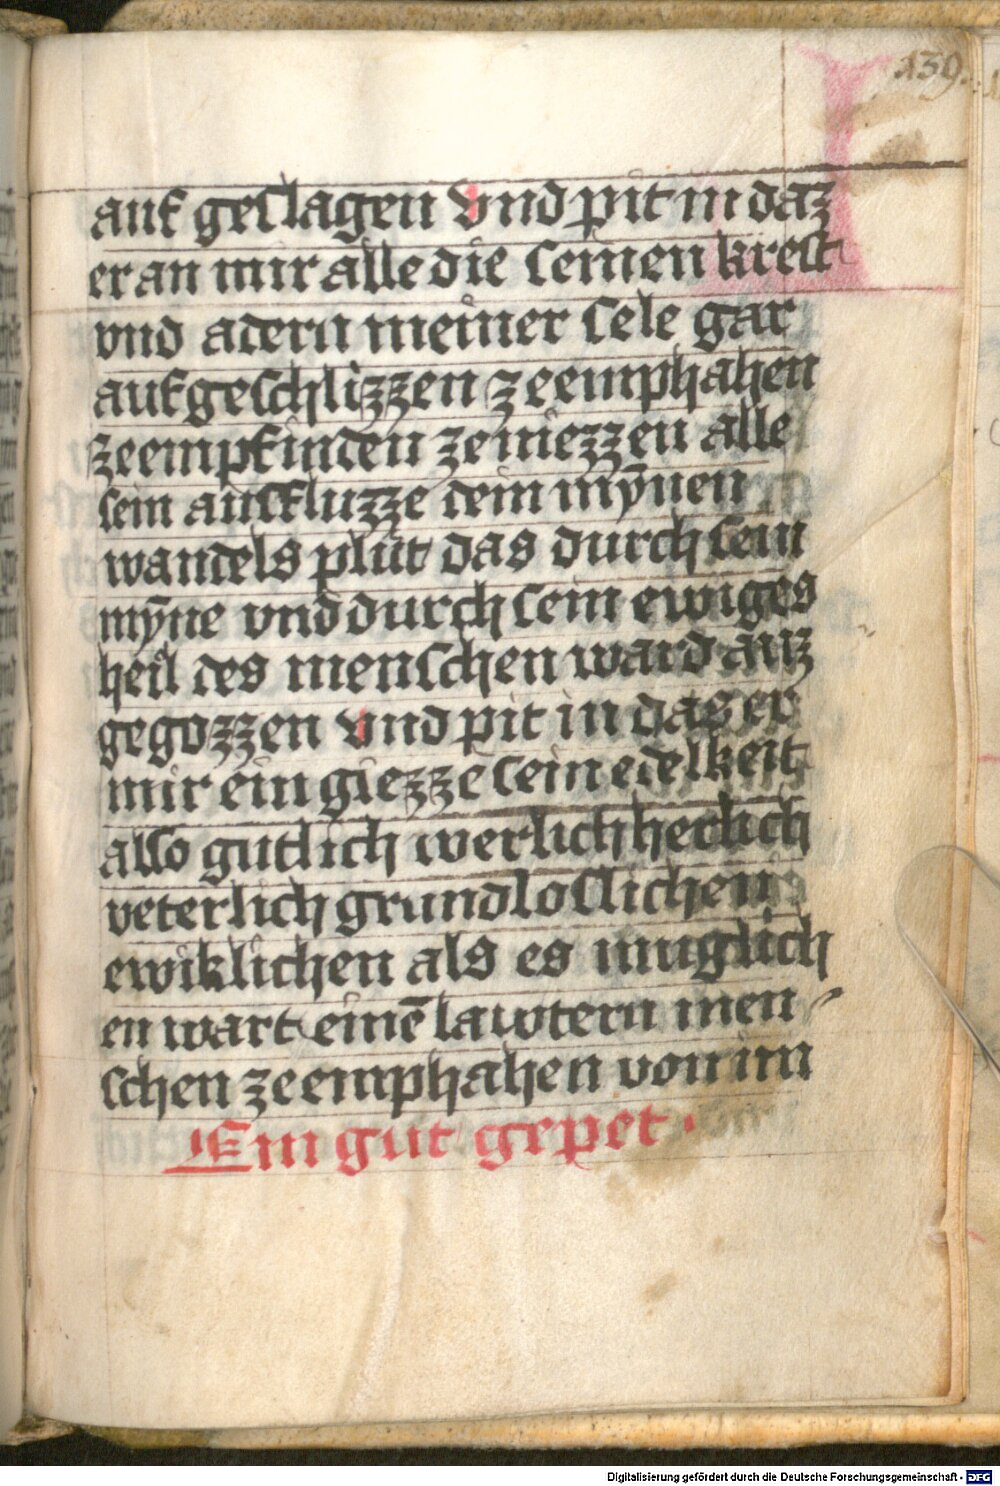 139.
auf geslagen vnd pit in daz
er an mir alle die seinen kreft
vnd adern meiner sele gar
aufgeschlizzen zeemphahen
zeempfinden ze niezzen alle
sein ausfluzze dein mȳnen
wandels plut das durch sein
mȳne vnd durch sein ewiges
heil des menschen ward auz
gegozzen vnd pit in das er
mir ein giezze sein edelkeit
also gutlich werlich herlich
veterlich grundloslichen
ewiklichen als es muglich
en wart einē lawtern men
schen zeemphahen von im
Ein gut gepet ·
Digitalisierung gefördert durch die Deutsche Forschungsgemeinschaft - DFG